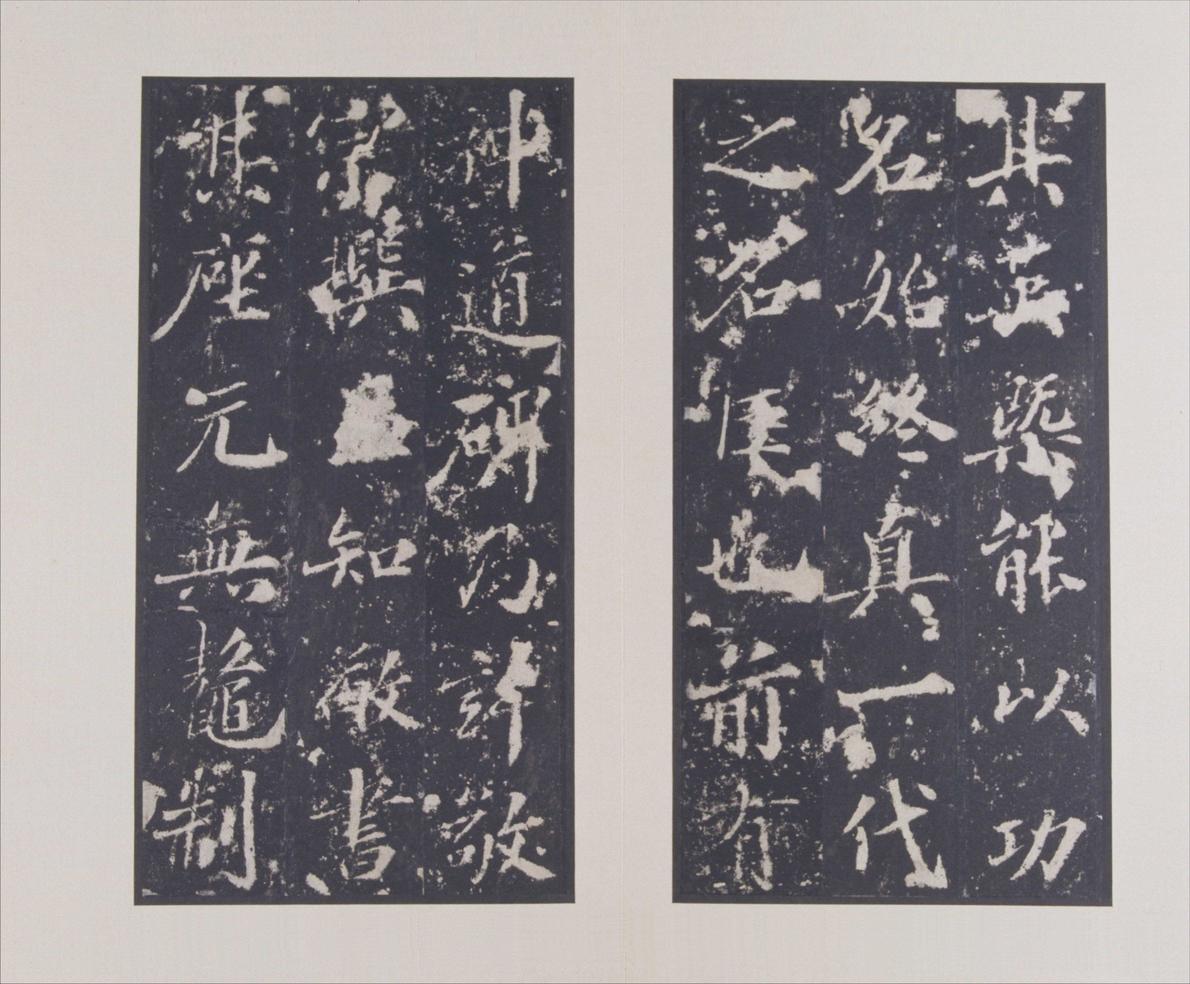 其英槩能以功
名始終真一代
之名臣也前有
神道碑乃許敬
宗撰知敬書
其座元無鼇制